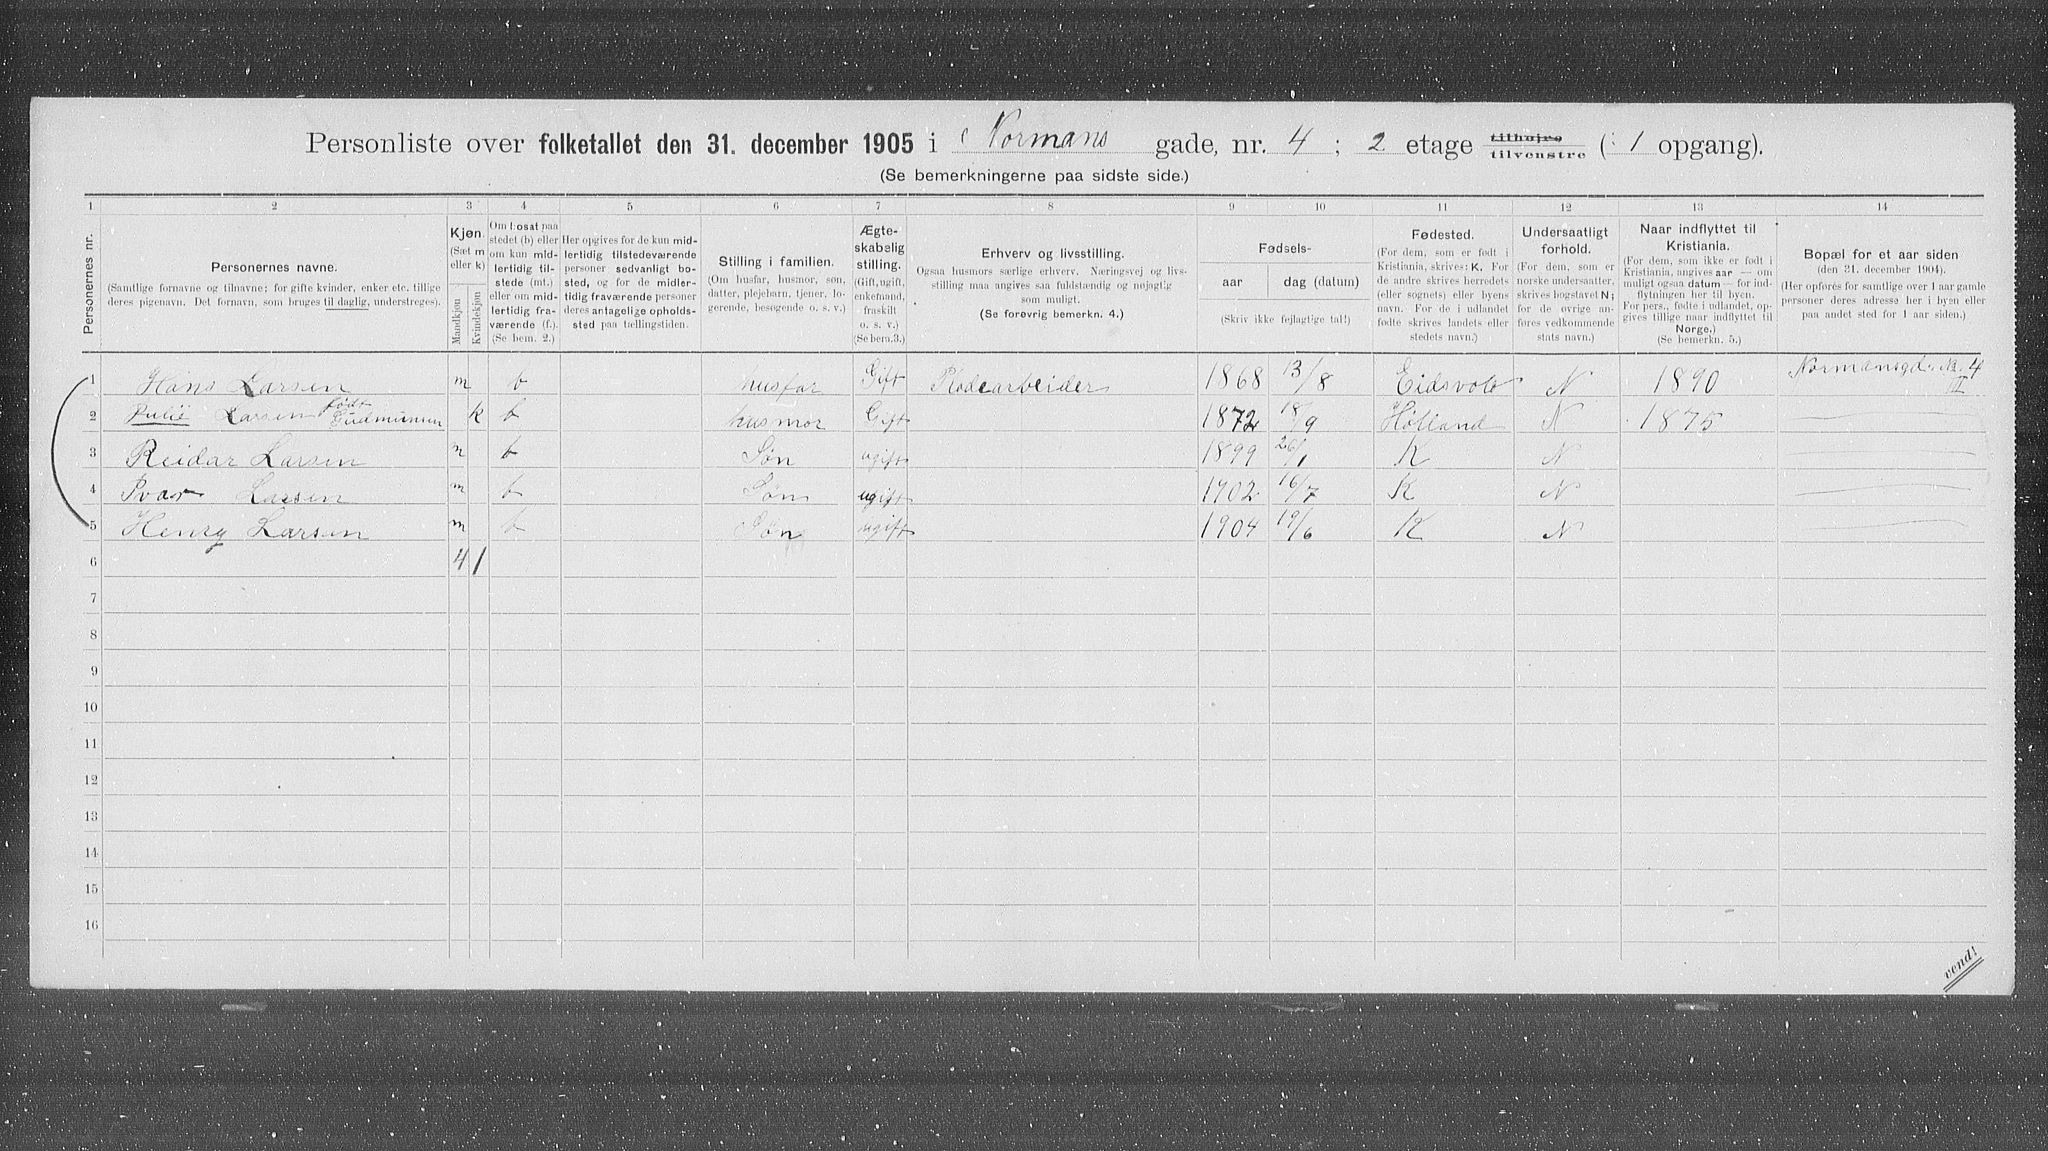 Personliste over folketallet den 31. december 1905 i Normans gade, nr. 4 ; 2 etage tilhøjre tilvenstre (: 1 opgang).
(Se bemerkningerne paa sidste side.)
1 2 3 4 5 6 7 8 9 10 11 12 13 14
Personernes nr.
Personernes navne.
(Samtlige fornavne og tilnavne; for gifte kvinder, enker etc. tillige
deres pigenavn. Det fornavn, som bruges til daglig, understreges).
Kjøn.
(Sæt m
eller k)
Mandkjøn
Kvindekjøn
Om bosat paa
stedet (b) eller
om kun mid-
lertidig til-
stede (mt.)
eller om mid-
lertidig fra-
værende (f.).
(Se bem. 2.)
Her opgives for de kun mid-
lertidig tilstedeværende
personer sedvanligt bo-
sted, og for de midler-
tidig fraværende personer
deres antagelige opholds-
sted paa tællingstiden.
Stilling i familien.
(Om husfar, husmor, søn,
datter, plejebarn, tjener, lo-
gerende, besøgende o. s. v.)
Ægte-
skabelig
stilling.
(Gift, ugift,
enkemand,
fraskilt
o. s. v.)
(Se bem.3.)
Erhverv og livsstilling.
Ogsaa husmors særlige erhverv. Næringsvej og livs-
stilling maa angives saa fuldstændig og nøjagtig
som muligt.
(Se forøvrig bemerkn. 4.)
Fødsels-
aar dag (datum)
(Skriv ikke fejlagtige tal!)
Fødested.
(For dem, som er født i
Kristiania, skrives: K. For
de andre skrives herredets
(eller sognets) eller byens
navn. For de i udlandet
fødte skrives landets eller
stedets navn.)
Undersaatligt
forhold.
(For dem, som er
norske undersaatter,
skrives bogstavet N;
for de øvrige an-
føres vedkommende
stats navn.)
Naar indflyttet til
Kristiania.
(For dem, som ikke er født i
Kristiania, angives aar — om
muligt ogsaa datum — for ind-
flytningen her til byen.
For pers., fødte i udlandet, op-
gives tillige naar indflyttet til
Norge.)
(Se bemerkn. 5.)
Bopæl for et aar siden
(den 31. december 1904).
(Her opføres for samtlige over 1 aar gamle
personer deres adresse her i byen eller
paa andet sted for 1 aar siden.)
1 Hans Larsen m b husfar Gift Rodearbeider 1868 13/8 Eidsvold N 1890 Normansgd. No. 4 II
2 Julie Larsen født Gudmunsen k b husmor Gift 1872 18/9 Høland N 1875
3 Reidar Larsen m b Søn ugift 1899 26/1 K N
4 Ivar Larsen m b Søn ugift 1902 16/7 K N
5 Henry Larsen m b Søn ugift 1904 19/6 K N
6 4 1
7
8
9
10
11
12
13
14
15
16
vend!